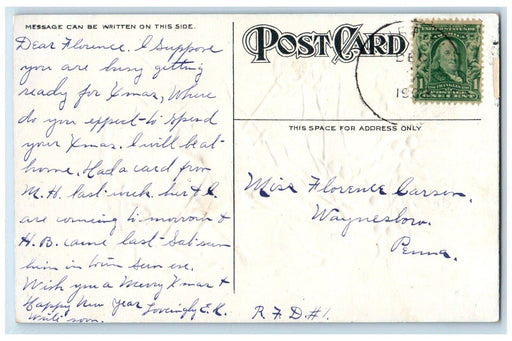 MESSAGE CAN BE WRITTEN ON THIS SIDE.
Dear Florence. I Suppose
you are busy getting
ready for Xmas, Where
do you expect to spend
your Xmas. I will be at
home. Had a card from
M. H. last week. her & C.
are coming to morrow &
H. B. came last Sat. saw
him in town Sun eve.
Wish you a Merry Xmas &
Happy New Year Lovingly E. K.
write soon.
POST CARD
THIS SPACE FOR ADDRESS ONLY
Miss Florence Carson.
Waynesboro.
Penna.
R. F. D. #1.